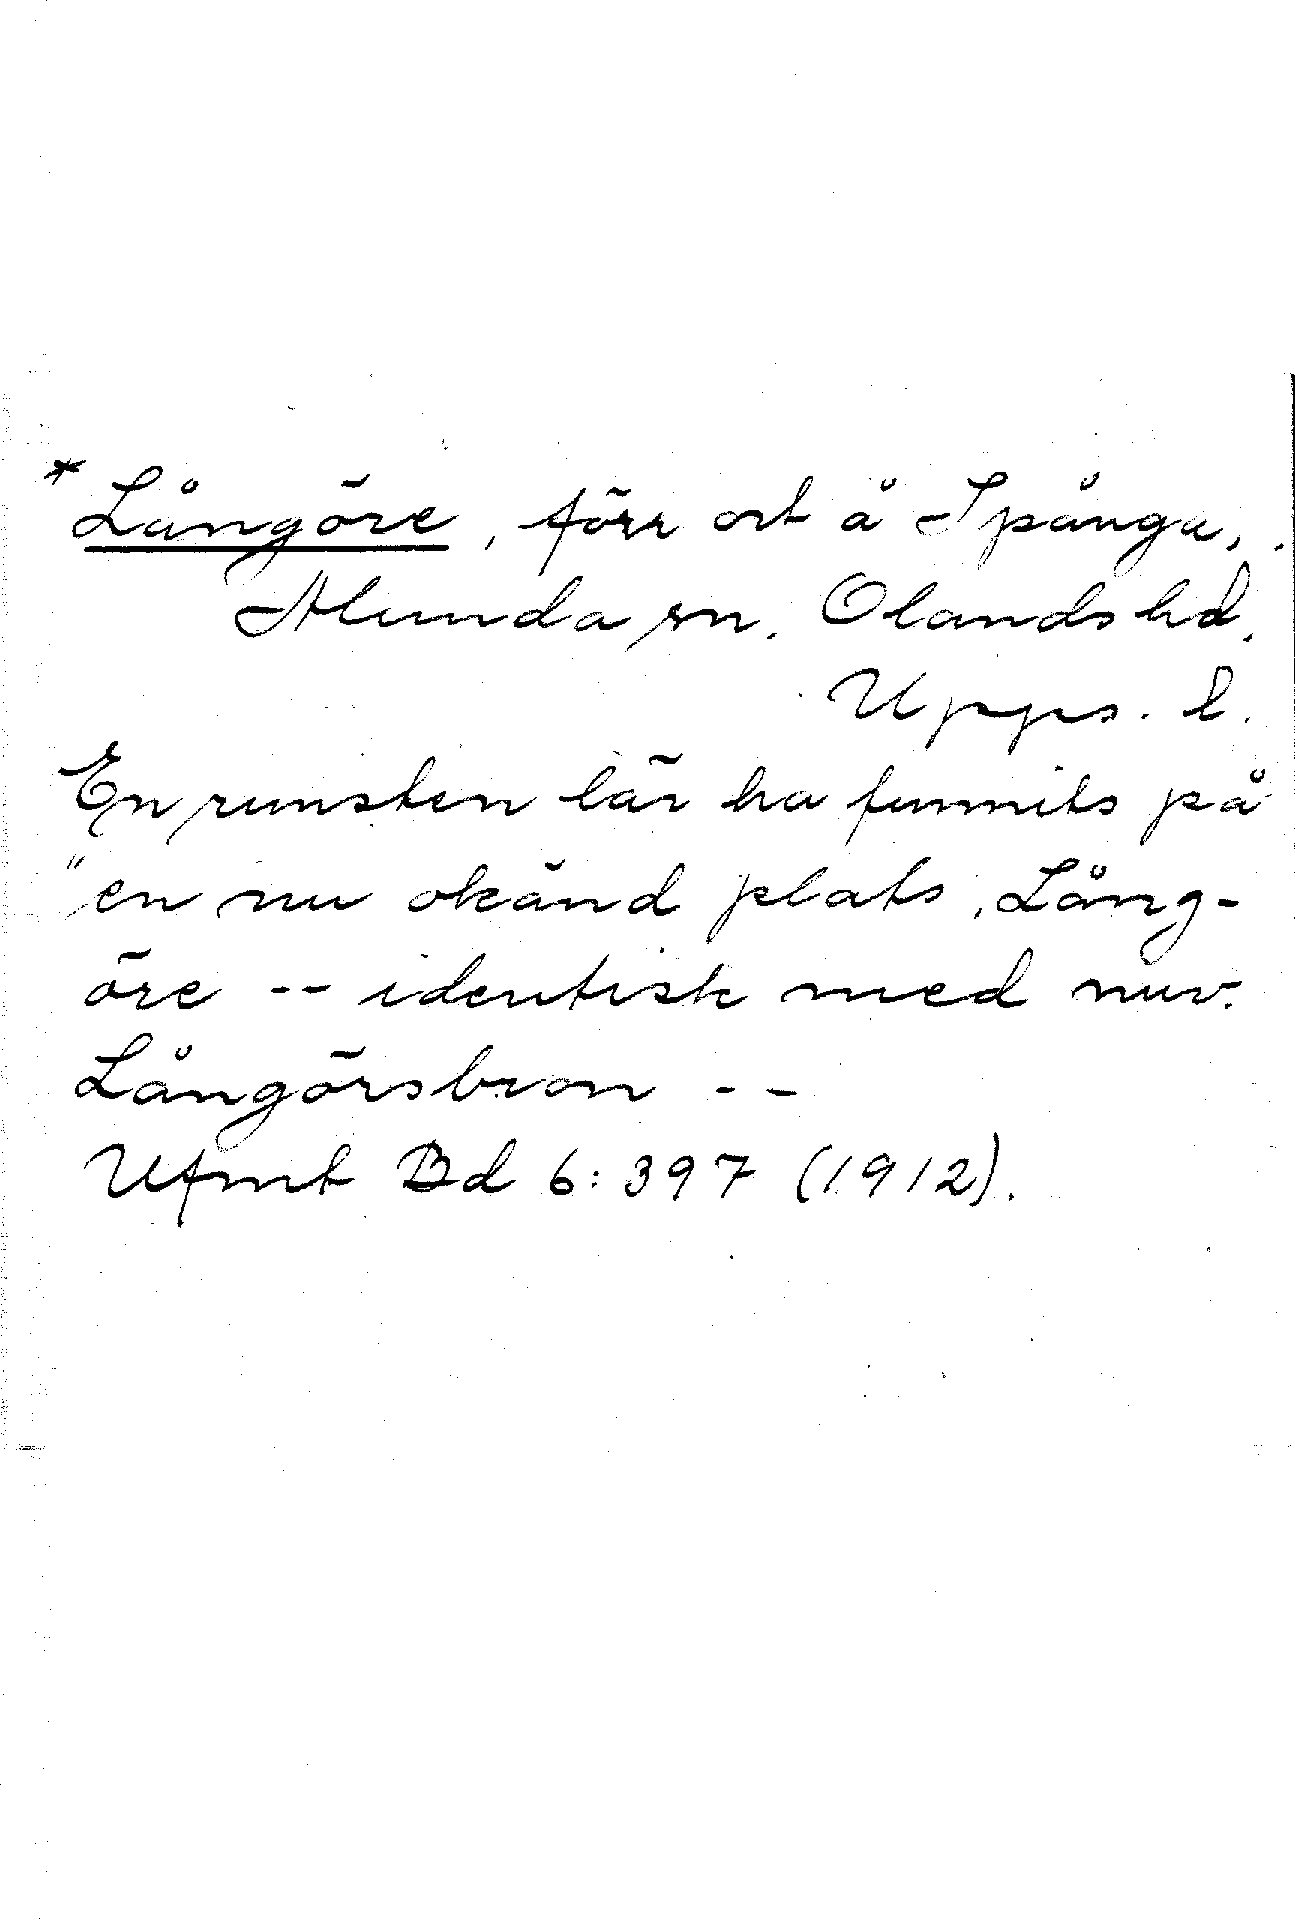 * Långöre, förr ort å Spånga,
Alunda sn. Olands hd.
Upps. l.
En runsten lär ha funnits på
"en nu okänd plats, Lång-
öre -- identisk med nuv.
Långörsbron --
Ufmt Bd 6:397 (1912).